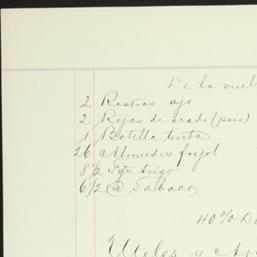 De la vuel
2 Ristras ajo
2 Rejas de arado (pais)
1 Botella tinta
26 Almudes frijol
8 1/2 Fgs trigo
6 1/2 @ Tabaco
40% De
Utiles y An